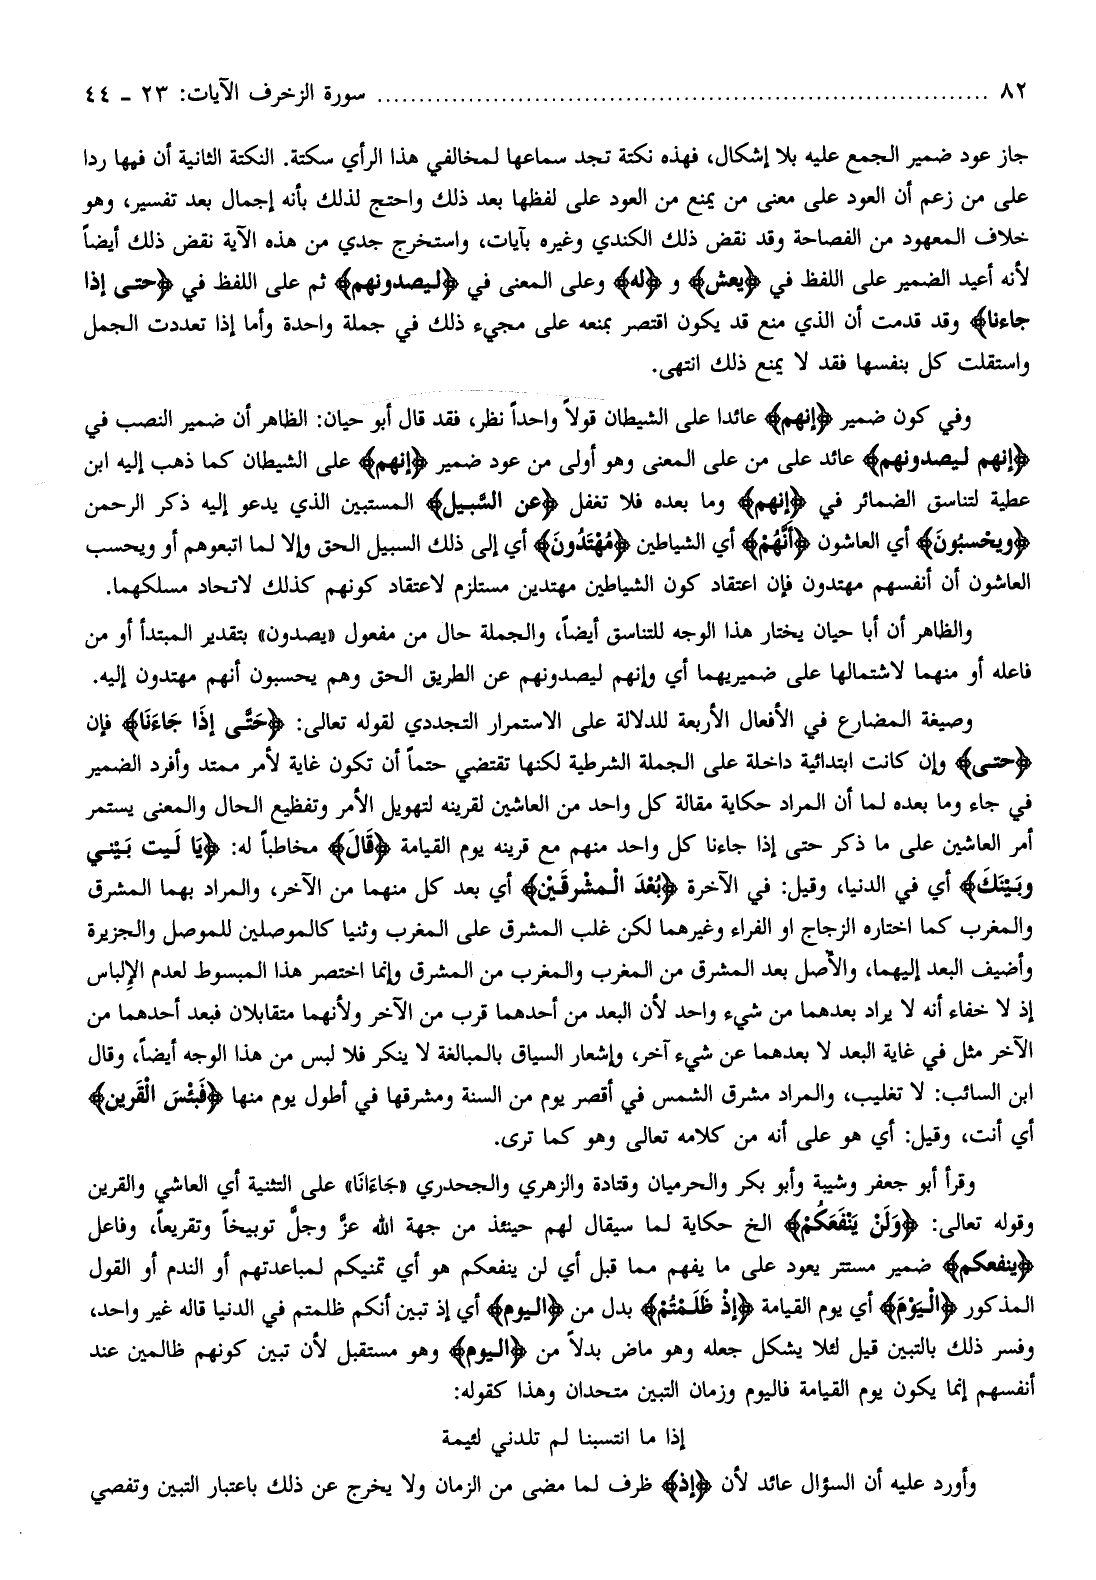 ٨٢ ........................................ سورة الزخرف الآيات: ٢٣ ـ ٤٤
جاز عود ضمير الجمع عليه بلا إشكال، فهذه نكتة تجد سماعها لمخالفي هذا الرأي سكتة. النكتة الثانية أن فيها ردا
على من زعم أن العود على معنى من يمنع من العود على لفظها بعد ذلك واحتج لذلك بأنه إجمال بعد تفسير، وهو
خلاف المعهود من الفصاحة وقد نقض ذلك الكندي وغيره بآيات، واستخرج جدي من هذه الآية نقض ذلك أيضاً
لأنه أعيد الضمير على اللفظ في ﴿يعش﴾ و ﴿له﴾ وعلى المعنى في ﴿ليصدونهم﴾ ثم على اللفظ في ﴿حتى إذا
جاءنا﴾ وقد قدمت أن الذي منع قد يكون اقتصر بمنعه على مجيء ذلك في جملة واحدة وأما إذا تعددت الجمل
واستقلت كل بنفسها فقد لا يمنع ذلك انتهى.
وفي كون ضمير ﴿إنهم﴾ عائدا على الشيطان قولاً واحداً نظر، فقد قال أبو حيان: الظاهر أن ضمير النصب في
﴿إنهم ليصدونهم﴾ عائد على من على المعنى وهو أولى من عود ضمير ﴿إنهم﴾ على الشيطان كما ذهب إليه ابن
عطية لتناسق الضمائر في ﴿إنهم﴾ وما بعده فلا تغفل ﴿عن السَّبيل﴾ المستبين الذي يدعو إليه ذكر الرحمن
﴿ويحْسبُونَ﴾ أي العاشون ﴿أَنَّهُمْ﴾ أي الشياطين ﴿مُهْتَدُونَ﴾ أي إلى ذلك السبيل الحق وإلا لما اتبعوهم أو ويحسب
العاشون أن أنفسهم مهتدون فإن اعتقاد كون الشياطين مهتدين مستلزم لاعتقاد كونهم كذلك لاتحاد مسلكهما.
والظاهر أن أبا حيان يختار هذا الوجه للتناسق أيضاً، والجملة حال من مفعول «يصدون» بتقدير المبتدأ أو من
فاعله أو منهما لاشتمالها على ضميريهما أي وإنهم ليصدونهم عن الطريق الحق وهم يحسبون أنهم مهتدون إليه.
وصيغة المضارع في الأفعال الأربعة للدلالة على الاستمرار التجددي لقوله تعالى: ﴿حَتَّى إذَا جَاءَنَا﴾ فإن
﴿حتى﴾ وإن كانت ابتدائية داخلة على الجملة الشرطية لكنها تقتضي حتماً أن تكون غاية لأمر ممتد وأفرد الضمير
في جاء وما بعده لما أن المراد حكاية مقالة كل واحد من العاشين لقرينه لتهويل الأمر وتفظيع الحال والمعنى يستمر
أمر العاشين على ما ذكر حتى إذا جاءنا كل واحد منهم مع قرينه يوم القيامة ﴿قَالَ﴾ مخاطباً له: ﴿يَا لَيت بَيْني
وبَيْنَكَ﴾ أي في الدنيا، وقيل: في الآخرة ﴿بُعْدَ الْمشْرقَيْن﴾ أي بعد كل منهما من الآخر، والمراد بهما المشرق
والمغرب كما اختاره الزجاج او الفراء وغيرهما لكن غلب المشرق على المغرب وثنيا كالموصلين للموصل والجزيرة
وأضيف البعد إليهما، والأصل بعد المشرق من المغرب والمغرب من المشرق وإنما اختصر هذا المبسوط لعدم الإلباس
إذ لا خفاء أنه لا يراد بعدهما من شيء واحد لأن البعد من أحدهما قرب من الآخر ولأنهما متقابلان فبعد أحدهما من
الآخر مثل في غاية البعد لا بعدهما عن شيء آخر، وإشعار السياق بالمبالغة لا ينكر فلا لبس من هذا الوجه أيضاً، وقال
ابن السائب: لا تغليب، والمراد مشرق الشمس في أقصر يوم من السنة ومشرقها في أطول يوم منها ﴿فَبئْسَ الْقَرين﴾
أي أنت، وقيل: أي هو على أنه من كلامه تعالى وهو كما ترى.
وقرأ أبو جعفر وشيبة وأبو بكر والحرميان وقتادة والزهري والجحدري «جَاءَانَا» على التثنية أي العاشي والقرين
وقوله تعالى: ﴿وَلَنْ يَنْفَعَكُمْ﴾ الخ حكاية لما سيقال لهم حينئذ من جهة الله عزَّ وجلَّ توبيخاً وتقريعاً، وفاعل
﴿ينفعكم﴾ ضمير مستتر يعود على ما يفهم مما قبل أي لن ينفعكم هو أي تمنيكم لمباعدتهم أو الندم أو القول
المذكور ﴿الْيَوْمَ﴾ أي يوم القيامة ﴿إذْ ظَلَمْتُمْ﴾ بدل من ﴿اليوم﴾ أي إذ تبين أنكم ظلمتم في الدنيا قاله غير واحد،
وفسر ذلك بالتبين قيل لئلا يشكل جعله وهو ماض بدلاً من ﴿اليوم﴾ وهو مستقبل لأن تبين كونهم ظالمين عند
أنفسهم إنما يكون يوم القيامة فاليوم وزمان التبين متحدان وهذا كقوله:
إذا ما انتسبنا لم تلدني لئيمة
وأورد عليه أن السؤال عائد لأن ﴿إذ﴾ ظرف لما مضى من الزمان ولا يخرج عن ذلك باعتبار التبين وتفصي